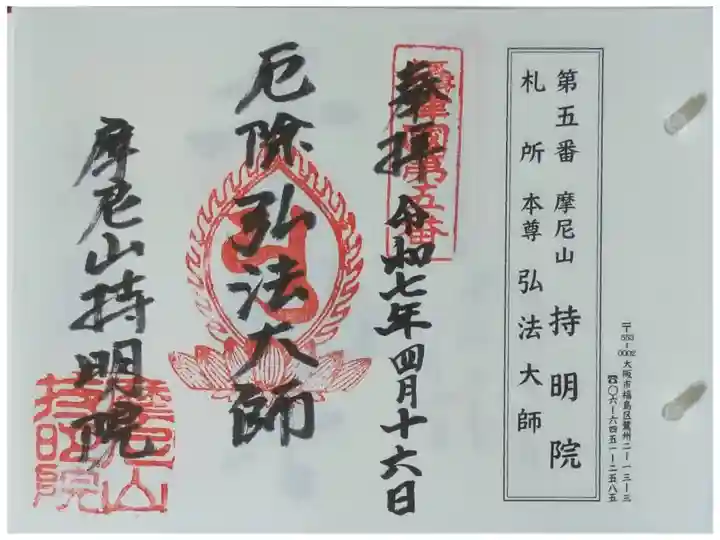 〒553-0002 大阪市福島区鷺州二-一三-三
☎〇六-六四五一-二五八五
第五番 摩尼山 持明院
札所 本尊 弘法大師
奉拝 令和七年四月十六日
第五番
厄除 弘法大師
摩尼山持明院
摩尼山
持明院